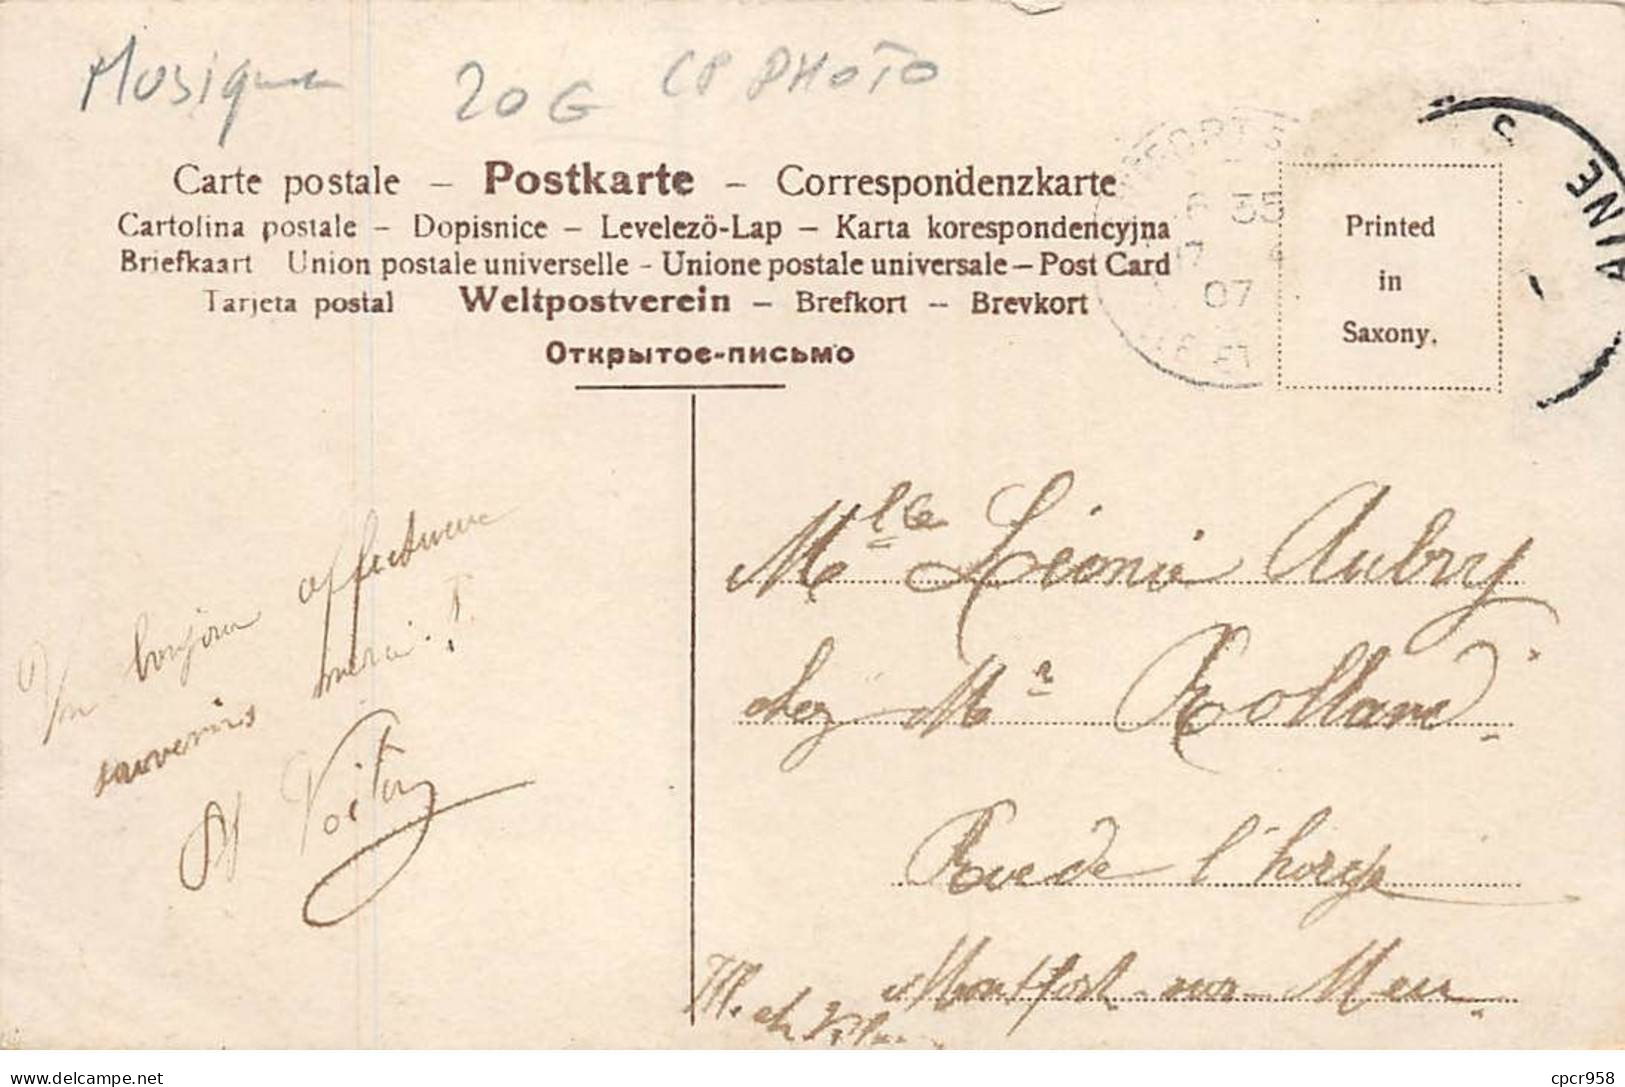 Musique 20 G CP PHOTO
Carte postale – Postkarte – Correspondenzkarte
Cartolina postale – Dopisnice – Levelezö-Lap – Karta korespondencyjna
Briefkaart Union postale universelle - Unione postale universale – Post Card
Tarjeta postal Weltpostverein – Brefkort – Brevkort
Открытое-письмо
35
07
Printed
in
Saxony.
Un bonjour affectueux
souvenirs merci !
Mlle Léonie Aubry
chez Mr Rolland
Rue de l'horloge
Montfort-sur-Meu
Ill. et Vil.
delcampe.net
cpcr958